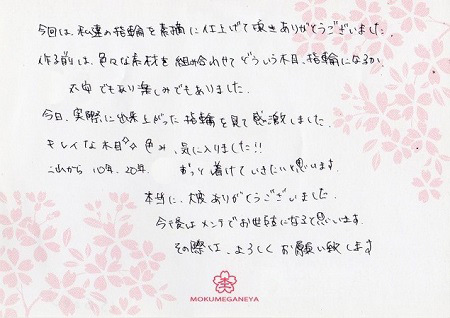 今回は、私達の指輪を素敵に仕上げて頂きありがとうございました。
作る前は、色々な素材を組み合わせてどういう木目、指輪になるか、
不安でもあり楽しみでもありました。
今日、実際に出来上がった指輪を見て感激しました。
キレイな木目や色み、気に入りました!!
これから10年、20年、ずっと着けていきたいと思います。
本当に、大変ありがとうございました。
今後はメンテでお世話になると思います。
その際は、よろしくお願い致します
MOKUMEGANEYA